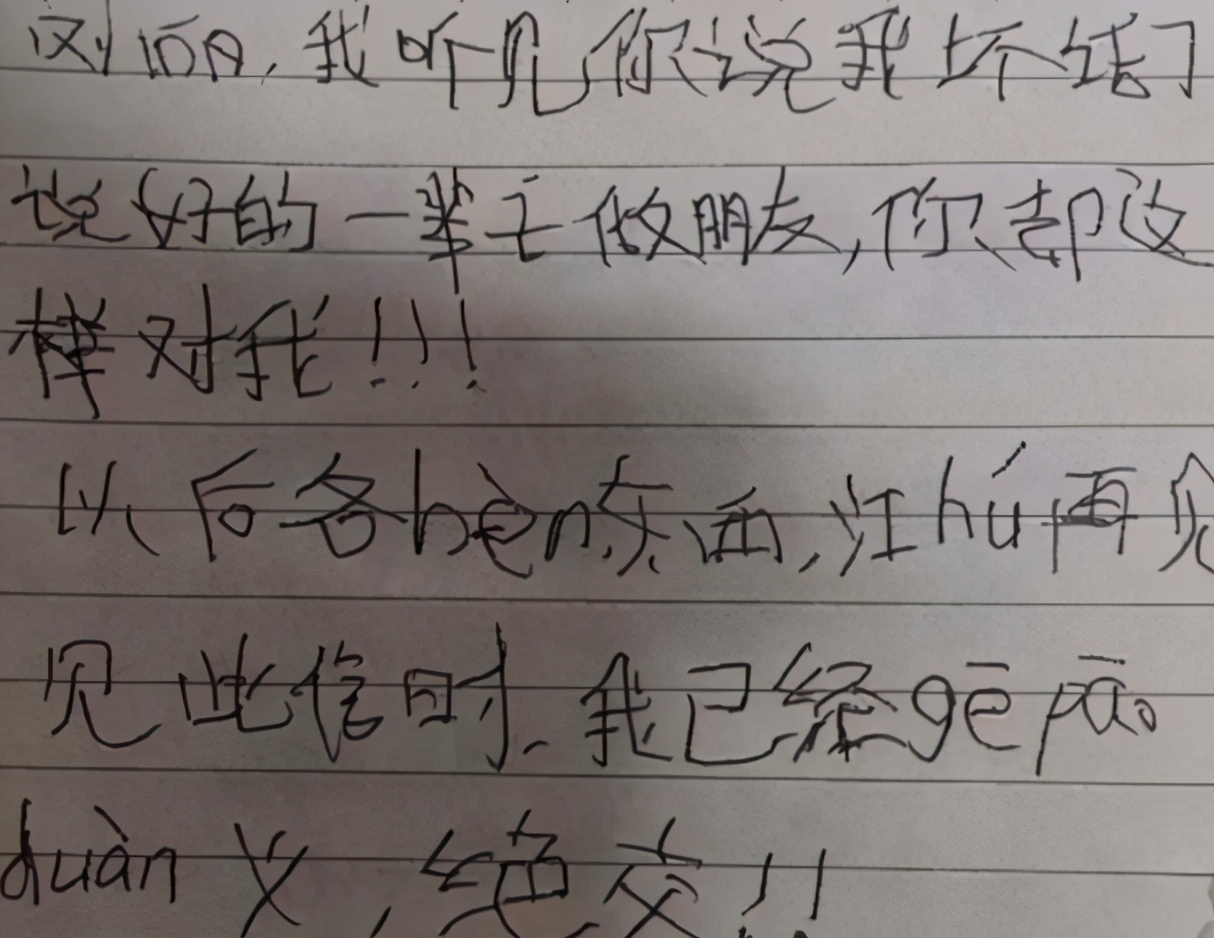 我听见你说我坏话了
说好的一辈子做朋友,你却这
样对我!!!
以后各hèn东西,江hú再见
见此信时,我已经gē pāo
duàn义,绝交!!